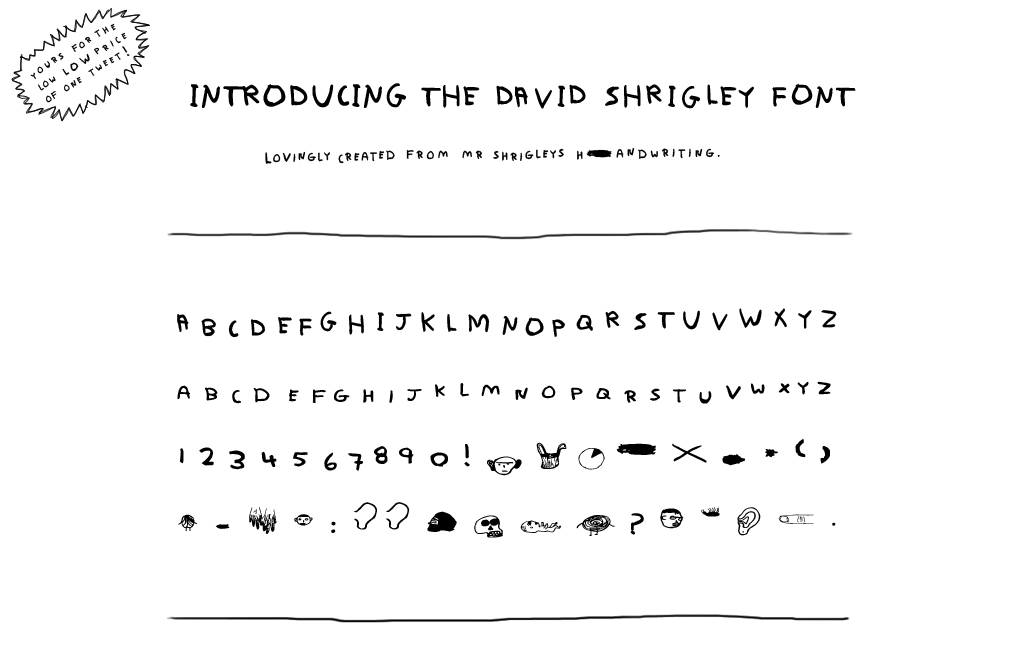 YOURS FOR THE
LOW LOW PRICE
OF ONE TWEET!
INTRODUCING THE DAVID SHRIGLEY FONT
LOVINGLY CREATED FROM MR SHRIGLEYS H ANDWRITING.
A B C D E F G H I J K L M N O P Q R S T U V W X Y Z
A B C D E F G H I J K L M N O P Q R S T U V W X Y Z
1 2 3 4 5 6 7 8 9 0 ! * ( )
- : ? .